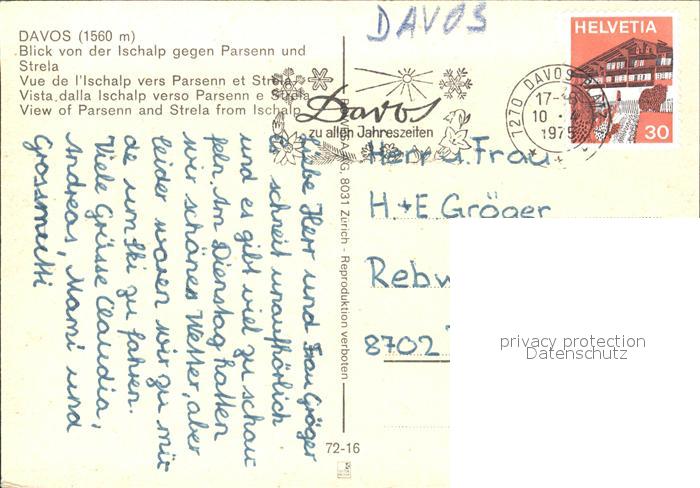 DAVOS (1560 m)
Blick von der Ischalp gegen Parsenn und
Strela
Vue de l'Ischalp vers Parsenn et Strela
Vista dalla Ischalp verso Parsenn e Strela
View of Parsenn and Strela from Ischalp
DAVOS
HELVETIA
30
Davos
zu allen Jahreszeiten
1270 DAVOS PLATZ
17-
10
1975
Herr u. Frau
H. + E Gröger
Rebw
8702
privacy protection
Datenschutz
Liebe Herr und Frau Gröger
Es schneit unaufhörlich
und es gibt viel zu schau
feln. Am Dienstag hatten
wir schönes Wetter, aber
leider waren wir zu mü
de um Ski zu fahren.
Viele Grüsse Claudia,
Andreas, Mami und
Grossmutti
AG, 8031 Zürich - Reproduktion verboten
72-16